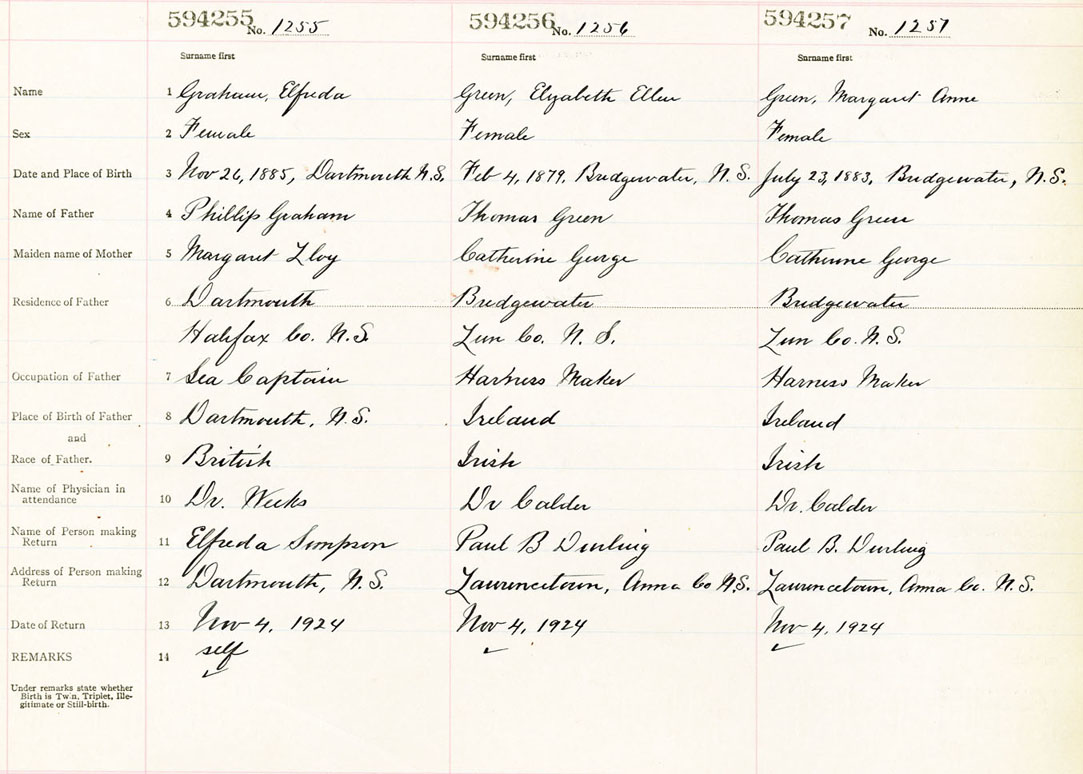 594255 No. 1255 594256 No. 1256 594257 No. 1257
Surname first Surname first Surname first
Name 1 Graham, Elfreda Green, Elizabeth Ellen Green, Margaret Anne
Sex 2 Female Female Female
Date and Place of Birth 3 Nov 26, 1885, Dartmouth N.S. Feb 4, 1879, Bridgewater, N.S. July 23, 1883, Bridgewater, N.S.
Name of Father 4 Phillip Graham Thomas Green Thomas Green
Maiden name of Mother 5 Margaret Lloy Catherine George Catherine George
Residence of Father 6 Dartmouth Bridgewater Bridgewater
Halifax Co. N.S. Lun Co. N.S. Lun Co. N.S.
Occupation of Father 7 Sea Captain Harness Maker Harness Maker
Place of Birth of Father 8 Dartmouth, N.S. Ireland Ireland
and
Race of Father. 9 British Irish Irish
Name of Physician in
attendance 10 Dr. Weeks Dr Calder Dr. Calder
Name of Person making
Return 11 Elfreda Simpson Paul B Durling Paul B. Durling
Address of Person making
Return 12 Dartmouth, N.S. Lawrencetown, Anna Co N.S. Lawrencetown, Anna Co. N.S.
Date of Return 13 Nov 4, 1924 Nov 4, 1924 Nov 4, 1924
REMARKS 14 self
Under remarks state whether
Birth is Twin, Triplet, Ille-
gitimate or Still-birth.